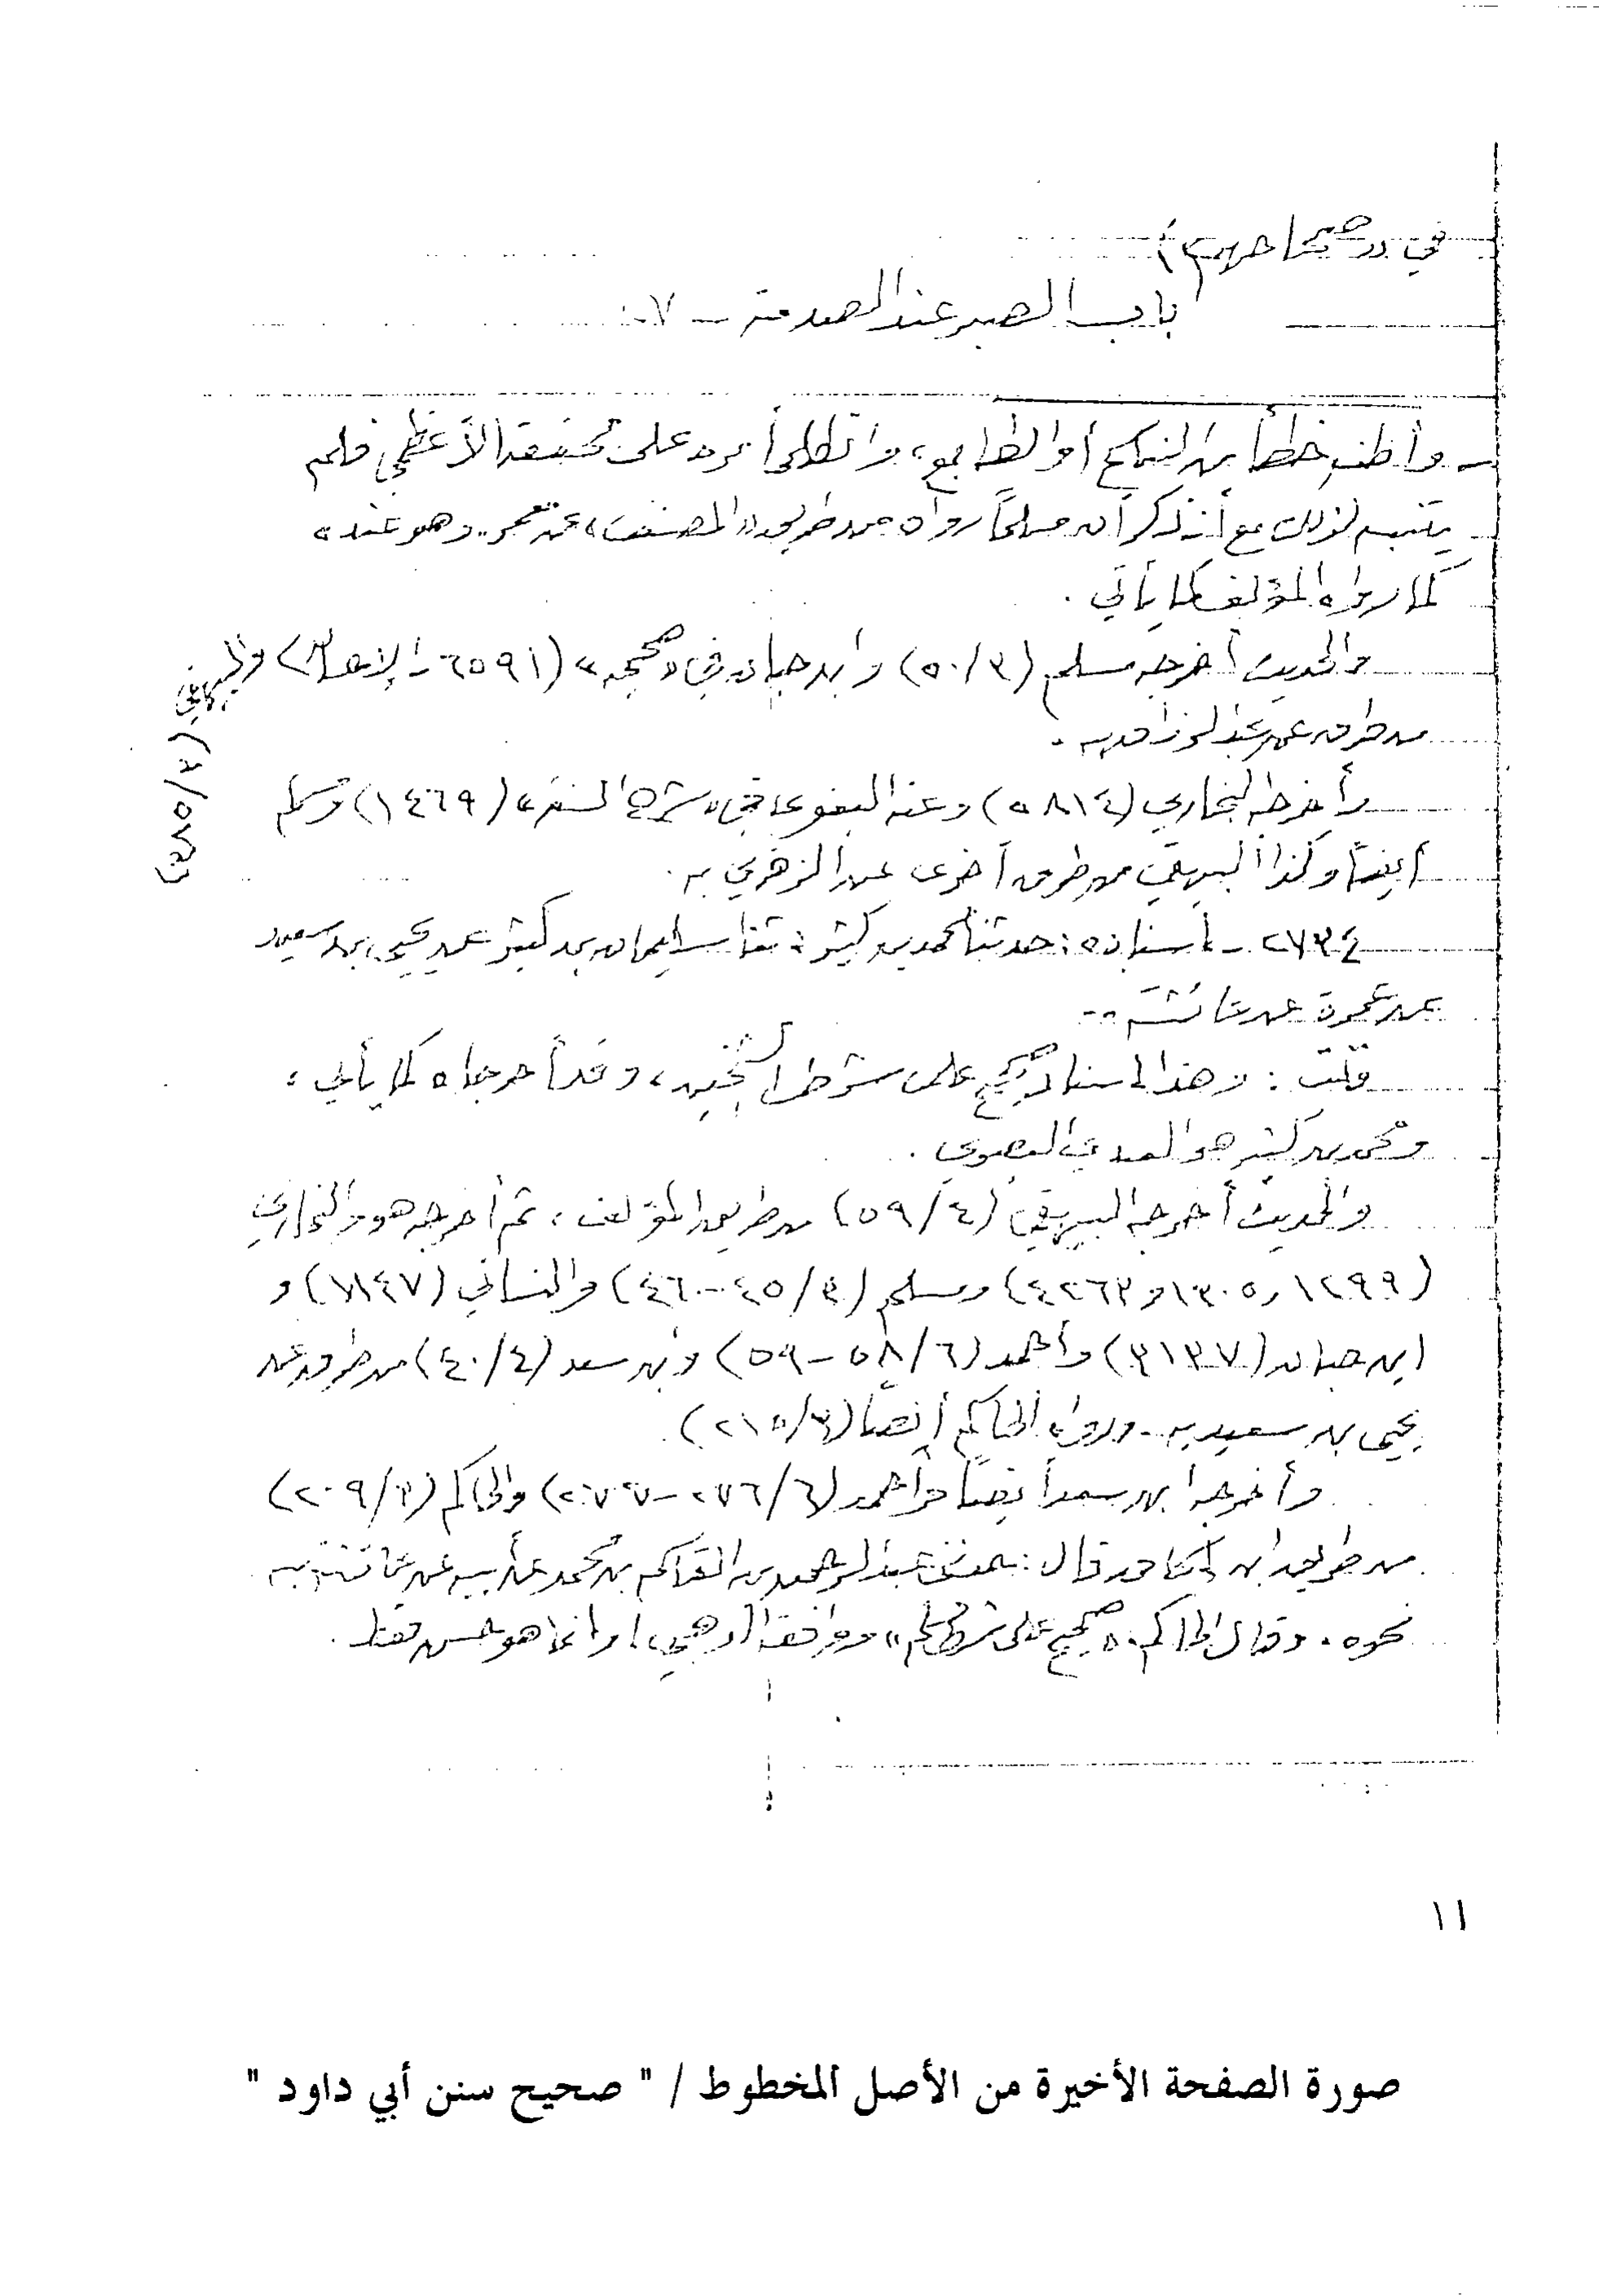 في
باب الصبر عند الصدمة - ٧
- وأظنه خطأ من الناسخ أو الطابع، وانطلى أمره على محققه الأعظمي فلم
يتنبه لذلك مع أنه ذكر أن مسلماً رواه من طريق «المصنف» عن معمر.. وهو عنده
كما رواه المؤلف كما يأتي.
والحديث أخرجه مسلم (٥٠/٣) وابن حبان في «صحيحه» (٦٥٩١ - الإحسان) والبيهقي
(٢٨٥/٧)
من طرق عن عبد الرزاق به.
وأخرجه البخاري (٥٨١٤) وعنه البغوي في «شرح السنة» (١٤٦٩) ومسلم
أيضاً وكذا البيهقي من طرق أخرى عن الزهري به.
٢٧٣٤ - إسناده: حدثنا محمد بن كثير: ثنا سليمان بن كثير عن يحيى بن سعيد
عن عمرة عن عائشة..
قلت: وهذا إسناد صحيح على شرط الشيخين، وقد أخرجاه كما يأتي؛
ومحمد بن كثير هو العبدي البصري.
والحديث أخرجه البيهقي (٥٩/٤) من طريق المؤلف، ثم أخرجه هو والبخاري
(١٢٩٩ و ١٣٠٥ و ٤٢٦٣) ومسلم (٤٥/٣-٤٦) والنسائي (١٨٤٧) و
ابن حبان (٣١٣٧) وأحمد (٥٨/٦-٥٩) وابن سعد (٤٠/٤) من طرق عن
يحيى بن سعيد به. ورواه الحاكم أيضاً (٢١٥/٣).
وأخرجه ابن سعد أيضاً وأحمد (٢٧٦/٦-٢٧٧) والحاكم (٢٠٩/٣)
من طريق ابن إسحاق قال: حدثني عبد الرحمن بن القاسم بن محمد عن أبيه عن عائشة به
نحوه. وقال الحاكم: «صحيح على شرط مسلم» ووافقه الذهبي! وإنما هو حسن فقط.
١١
صورة الصفحة الأخيرة من الأصل المخطوط / " صحيح سنن أبي داود "